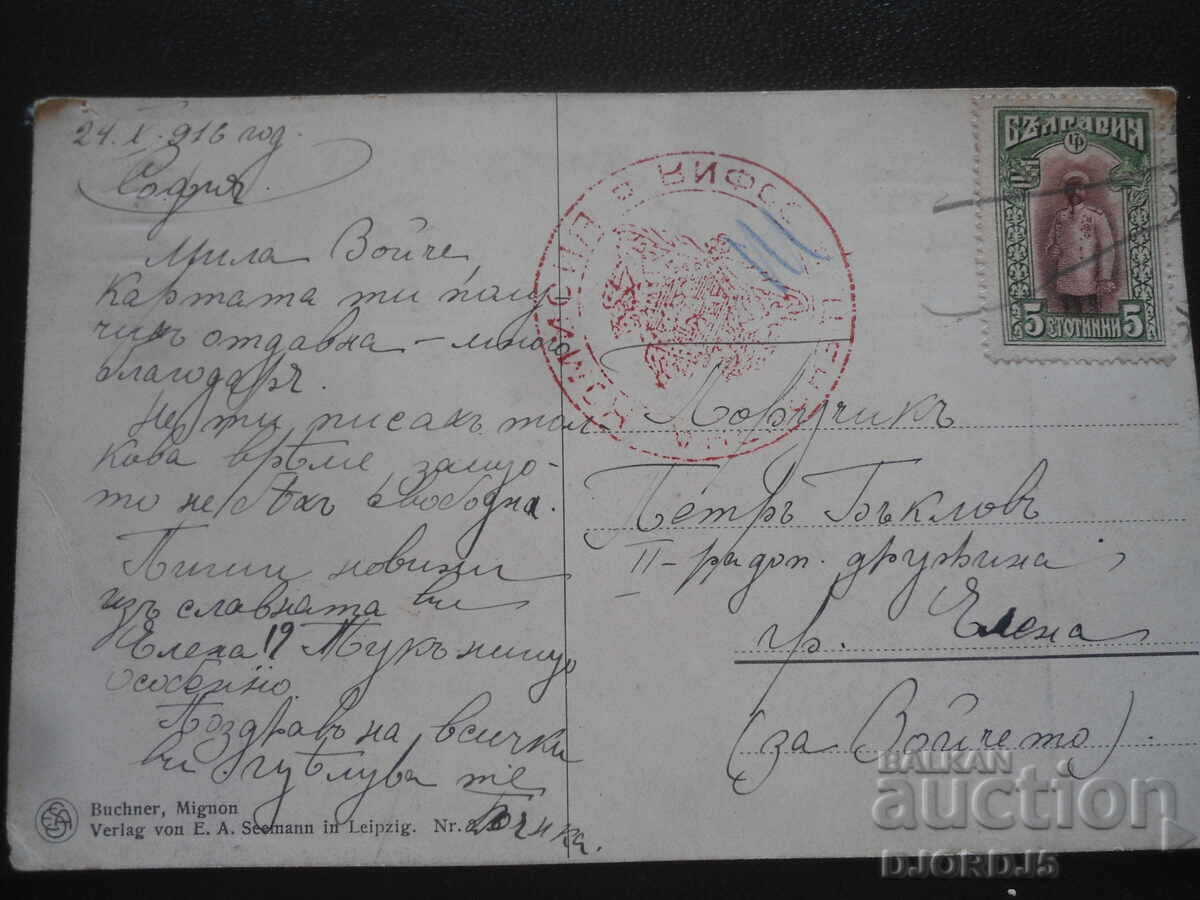 24. X. 916 год.
София.
Мила Войче,
Картата ти полу-
чихъ отдавна – много
благодаря.
Не ти писахъ тол-
кова врѣме защо-
то не бѣхъ свободна.
Пиши новини
изъ славната ви
Елена!? Тукъ нищо
особенно.
Поздравъ на всички
ви. Цѣлува те
Buchner, Mignon
Verlag von E. A. Seemann in Leipzig. Nr.
БЪЛГАРИЯ
5 СТОТИНКИ 5
СОФИЯ
Поручикъ
Петръ Бъкловъ
II – ра доп. дружина
гр. Елена
(за Войчето)
BALKAN
auction
DJORDJ5